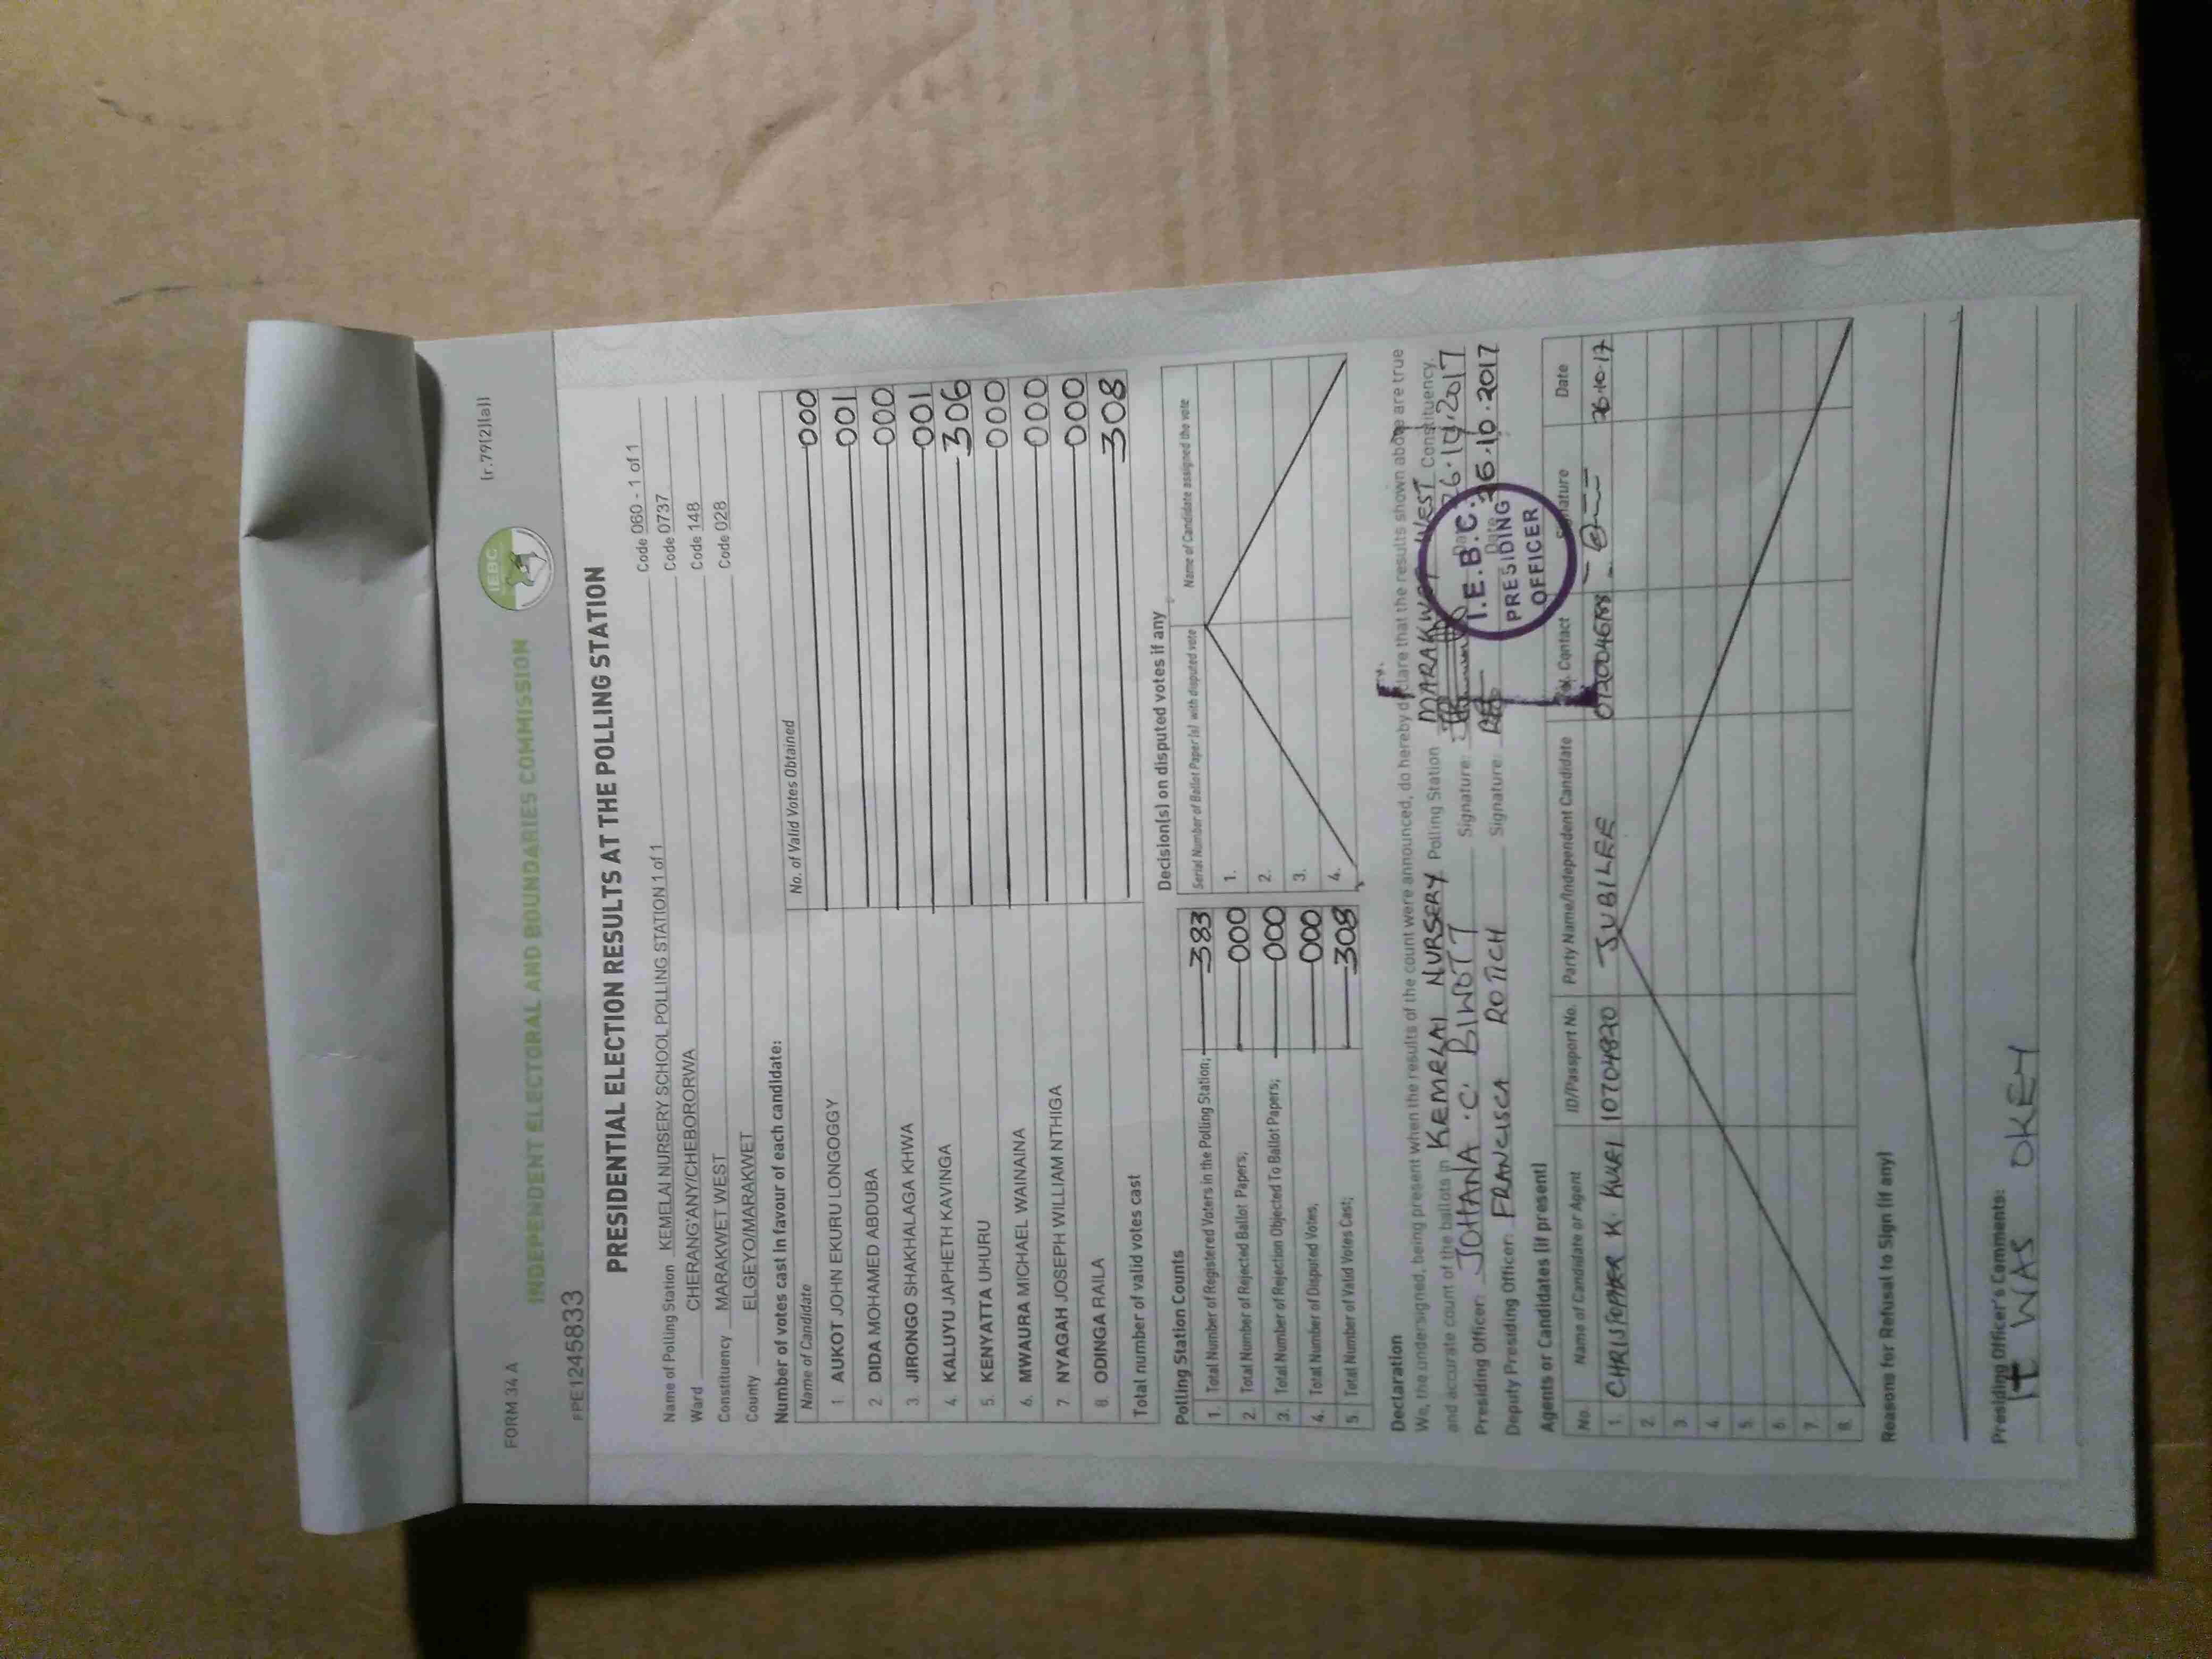 FORM 34 A
INDEPENDENT ELECTORAL AND BOUNDARIES COMMISSION
IEBC
(r.79(2)(a))
#PE1245833
PRESIDENTIAL ELECTION RESULTS AT THE POLLING STATION
Name of Polling Station KEMELAI NURSERY SCHOOL POLLING STATION 1 of 1 Code 060 - 1 of 1
Ward CHERANG'ANY/CHEBORORWA Code 0737
Constituency MARAKWET WEST Code 148
County ELGEYO/MARAKWET Code 028
Number of votes cast in favour of each candidate:
Name of Candidate No. of Valid Votes Obtained
1. AUKOT JOHN EKURU LONGOGGY 000
2 DIDA MOHAMED ABDUBA 001
3 JIRONGO SHAKHALAGA KHWA 000
4. KALUYU JAPHETH KAVINGA 001
5. KENYATTA UHURU 306
6. MWAURA MICHAEL WAINAINA 000
7. NYAGAH JOSEPH WILLIAM NTHIGA 000
8. ODINGA RAILA 000
Total number of valid votes cast 308
Polling Station Counts
1. Total Number of Registered Voters in the Polling Station; 383
2. Total Number of Rejected Ballot Papers; 000
3. Total Number of Rejection Objected To Ballot Papers; 000
4. Total Number of Disputed Votes; 000
5. Total Number of Valid Votes Cast; 308
Decision(s) on disputed votes if any
Serial Number of Ballot Paper (s) with disputed vote Name of Candidate assigned the vote
1.
2.
3.
4.
Declaration
We, the undersigned, being present when the results of the count were announced, do hereby declare that the results shown above are true
and accurate count of the ballots in KEMELAI NURSERY Polling Station MARAKWET WEST Constituency.
Presiding Officer: JOHANA .C. BIWOTT Signature: Date 26.10.2017
Deputy Presiding Officer: FRANCISCA ROTICH Signature: Date 26.10.2017
I.E.B.C.
PRESIDING
OFFICER
Agents or Candidates (if present)
No. Name of Candidate or Agent ID/Passport No. Party Name/Independent Candidate Tel. Contact Signature Date
1. CHRISTOPHER K. 10704820 JUBILEE 26.10.17
2.
3.
4
5
6.
7.
8.
Reasons for Refusal to Sign (if any)
Presiding Officer's Comments:
It WAS OKEY